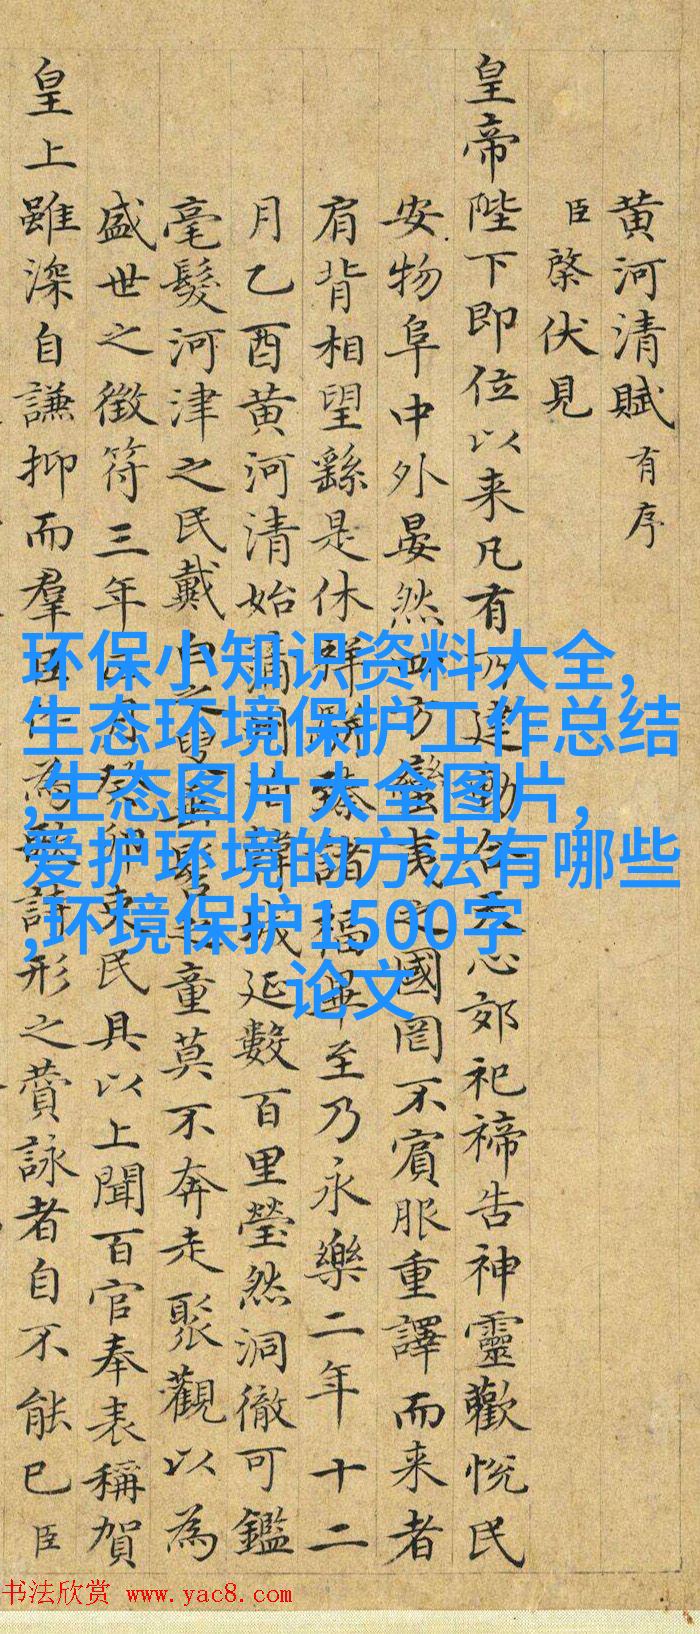 黄河清賦 有序
臣棨伏見
皇帝陛下即位以来凡有所建動合天心郊祀禘告神靈歡悦民
安物阜中外晏然四方蠻夷之國罔不賓服重譯而来者
肩背相望繇是休祥駢臻諸福畢至乃永樂二年十二
月乙酉黄河清始蒲同韓城延數百里瑩然洞徹可鑑
毫髮河津之民戴白之叟垂髫之童莫不奔走聚觀以為
盛世之徵符三年癸卯民具以上聞百官奉表稱賀
皇上雖深自謙抑而羣臣作為詩形之賛詠者自不能已臣
环保小知识资料大全,
生态环境保护工作总结
,生态图片大全图片,
爱护环境的方法有哪些
,环境保护1500字
论文
书法欣赏 www.yac8.com